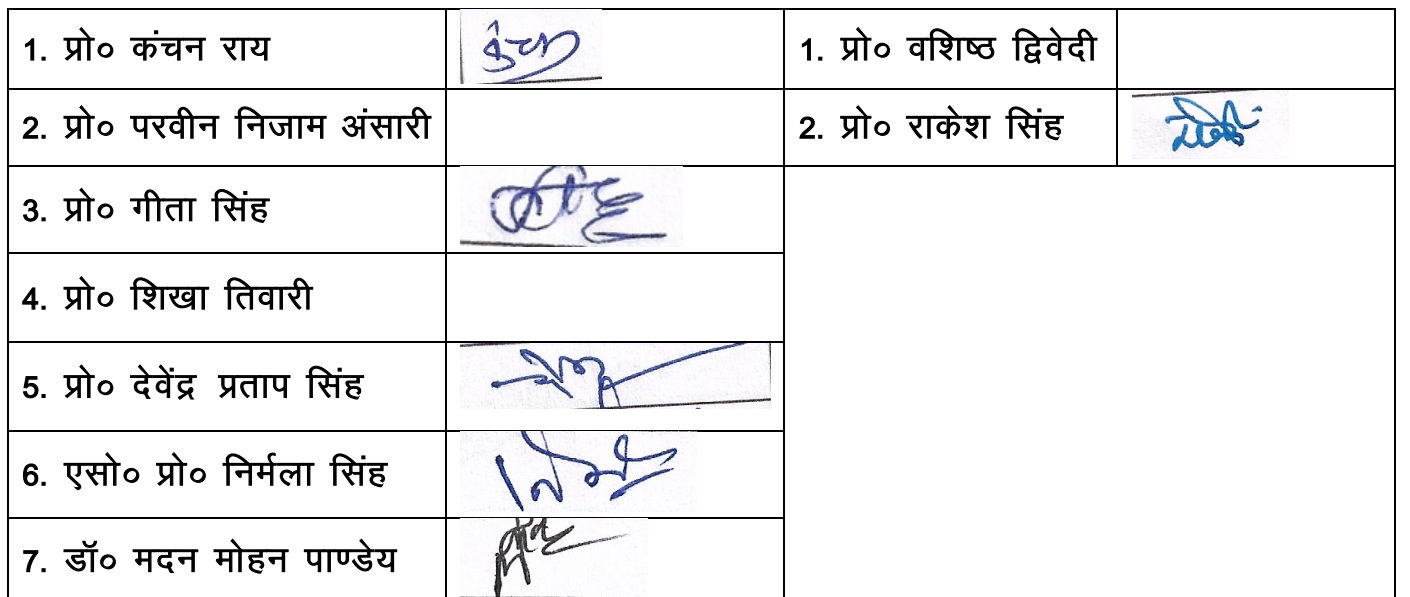 1. प्रो० कंचन राय
1. प्रो० वशिष्ठ द्विवेदी
2. प्रो० परवीन निजाम अंसारी
2. प्रो० राकेश सिंह
3. प्रो० गीता सिंह
4. प्रो० शिखा तिवारी
5. प्रो० देवेंद्र प्रताप सिंह
6. एसो० प्रो० निर्मला सिंह
7. डॉ० मदन मोहन पाण्डेय